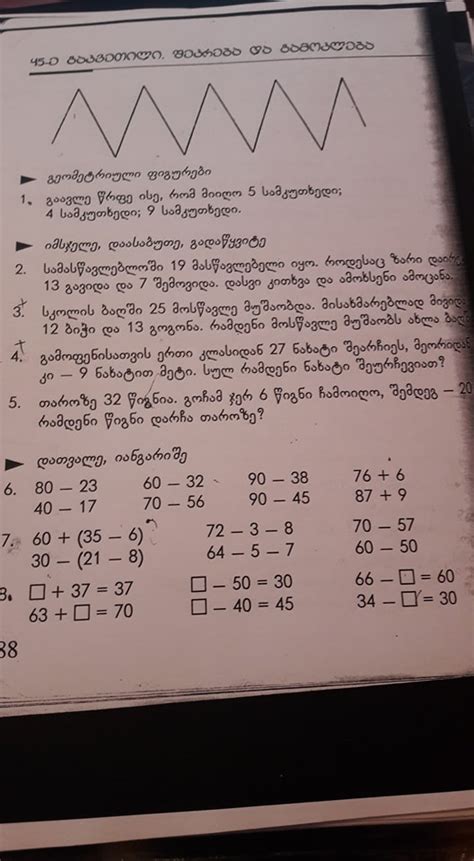 45-ე გაკვეთილი. შეკრება და გამოკლება
გეომეტრიული ფიგურები
1. გაავლე წრფე ისე, რომ მიიღო 5 სამკუთხედი;
4 სამკუთხედი; 9 სამკუთხედი.
იმსჯელე, დაასაბუთე, გადაწყვიტე
2. სამასწავლებლოში 19 მასწავლებელი იყო. როდესაც ზარი
13 გავიდა და 7 შემოვიდა. დასვი კითხვა და ამოხსენი ამოცანა.
3. სკოლის ბაღში 25 მოსწავლე მუშაობდა. მისახმარებლად
12 ბიჭი და 13 გოგონა. რამდენი მოსწავლე მუშაობს ახლა
4. გამოფენისათვის ერთი კლასიდან 27 ნახატი შეარჩიეს,
კი — 9 ნახატით მეტი. სულ რამდენი ნახატი შეურჩევიათ?
5. თაროზე 32 წიგნია. გოჩამ ჯერ 6 წიგნი ჩამოიღო, შემდეგ — 20
რამდენი წიგნი დარჩა თაროზე?
დათვალე, იანგარიშე
6. 80 — 23 60 — 32 90 — 38 76 + 6
40 — 17 70 — 56 90 — 45 87 + 9
7. 60 + (35 — 6) 72 — 3 — 8 70 — 57
30 — (21 — 8) 64 — 5 — 7 60 — 50
8. □ + 37 = 37 □ — 50 = 30 66 — □ = 60
63 + □ = 70 □ — 40 = 45 34 — □ = 30
88